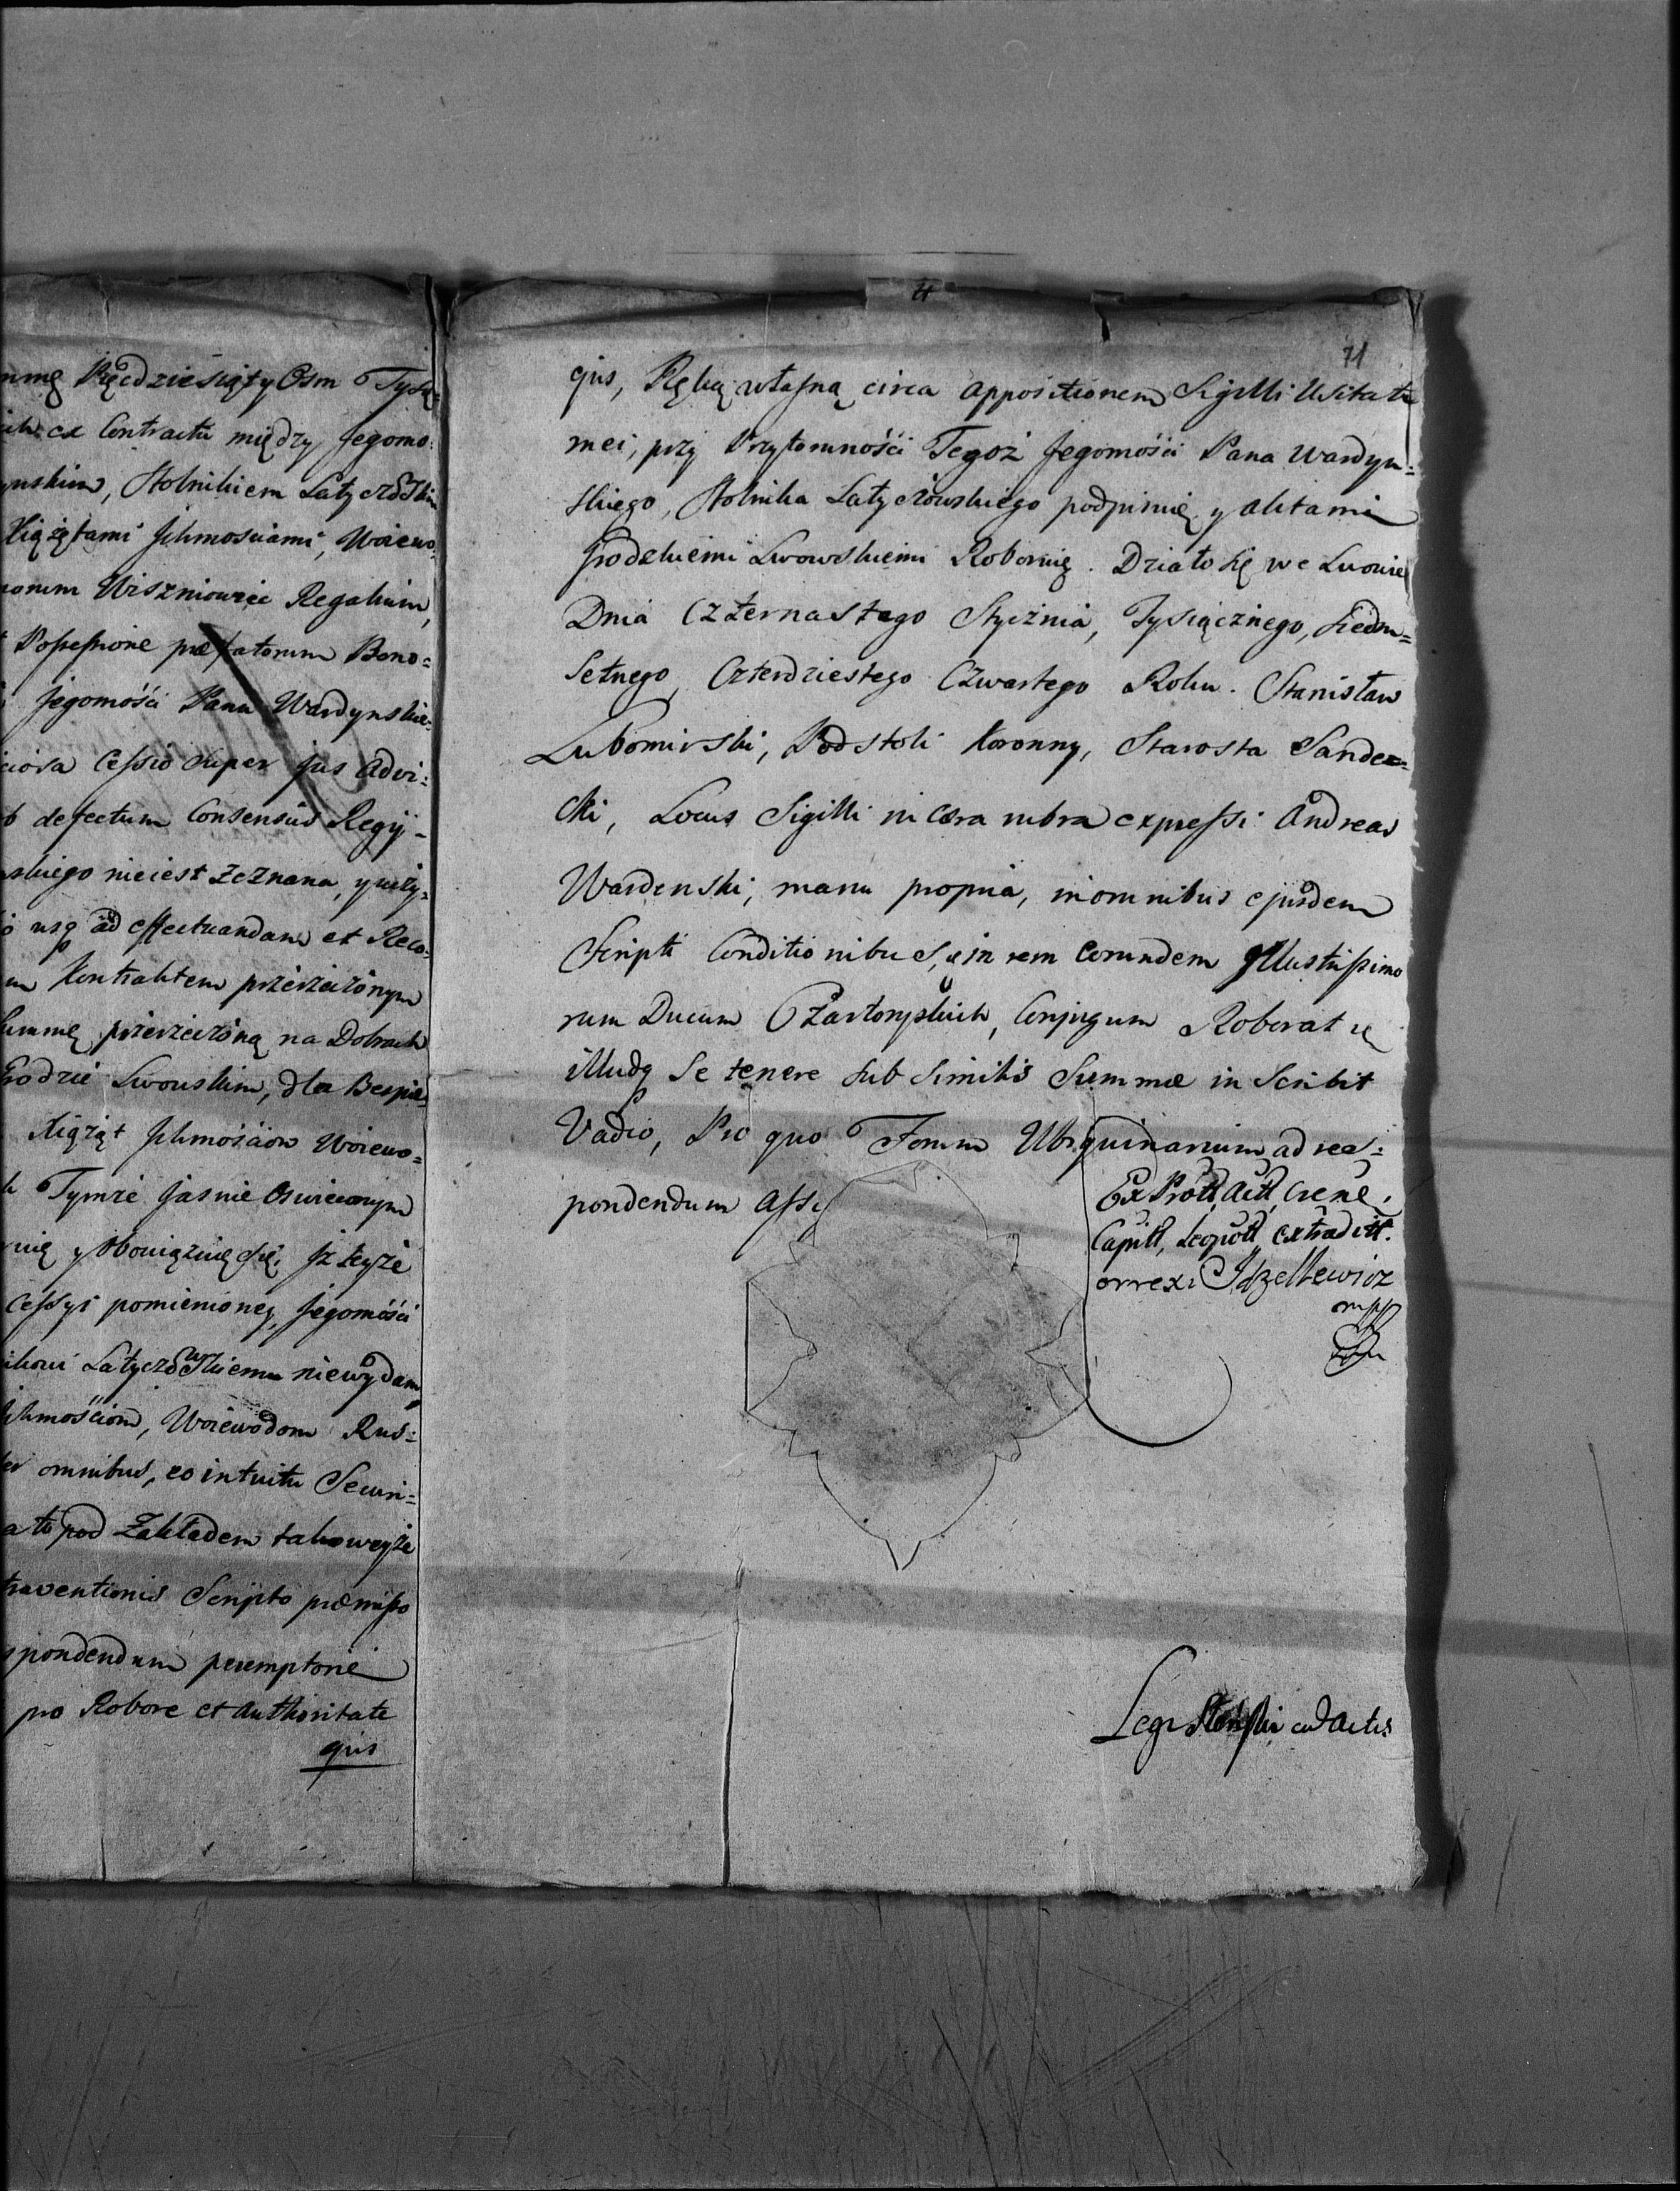 mmę Pięcdziesiąt y Osm Tysię-
ex Contractu między Jegomo:
ynskim, Stolnikiem Latyczówskim
Xiążętami Jchmosciami, Woiewo
norum Wiszniowiec Regalium,
Possessione præfatorum Bono=
Jegomości Panu Wardynskie-
Cessio super jus advi:
defectum Consensus Regij-
skiego nieiest zeznana,
usq ad effectuandam et Reco-
m Kontraktem przerzeczonym
Summę przerzeczoną na Dobrach
Grodzie Lwowskim, dla Bespie-
Xiążąt Jchmościow Woiewo=
Tymże Jasnie Oswieconym
nię y obowiązuię się, Jż teyże
Cessyi pomienioney, Jegomości
nikowi Latyczówskiemu niewydam
Jchmościom, Woiewodom Rus:
omnibus, eo intuitu Securi=
pod Zakładem takoweyże
traventionis Scripto præmisso
spondendum peremptorie
pro Robore et Authoritate
qus
71
qus, Ręką własną circa appositionem Sigilli Usitati
mei, przy Przytomności Tegoż Jegomości Pana Wardyn=
skiego, Stolnika Latyczówskiego podpisuię y aktami
Grodzkiemi Lwowskiemi Roboruię. Działo się we Lwowie
Dnia Czternastego Stycznia, Tysiącznego, Siedm=
Setnego, Czterdziestego Czwartego Roku. Stanisław
Lubomirski, Podstoli Koronny, Starosta Sande=
cki, Locus Sigilli in cæra rubra expressi Andreas
Wardenski, manu propria, in omnibus ejusdem
Scripti Conditionibus, in rem eorundem Jllustrissimo
rum Ducum Czartoryskich, Conjugum Roborat
illudq Se tenere sub similis Summæ inscribit
Vadio, Pro quo Forum Ubiquinarium ad res:
pondendum
Ex Prott, Actt, Crene,
Capitt, Leopott extraditt.
orrexi Jdzellewicz
mpp
Legi cum Actis